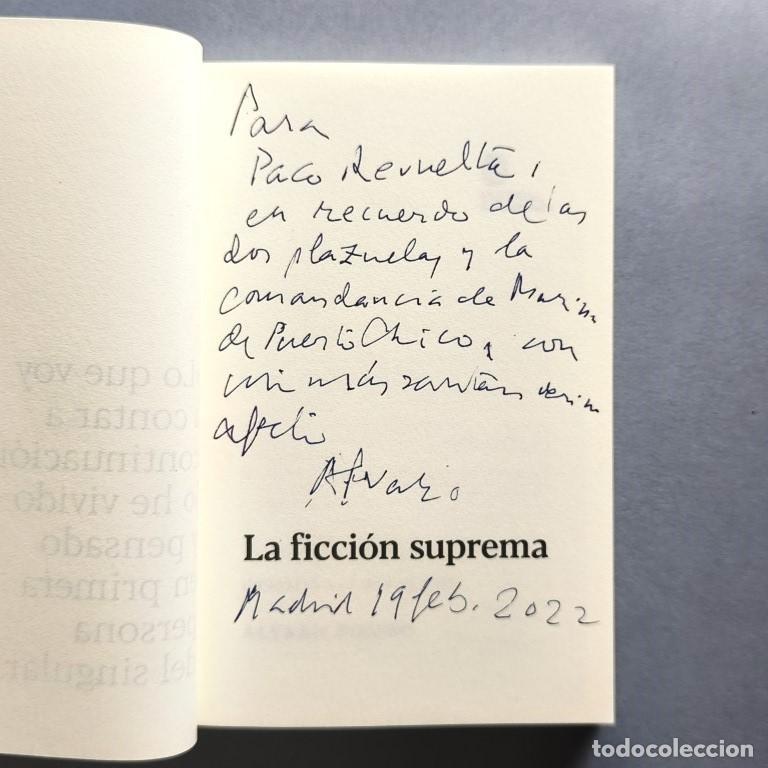 Para
Paco Revuelta,
en recuerdo de las
dos plazuelas y la
comandancia de Marina
de Puerto Chico y con
mi más santanderino
afecto
Álvaro
La ficción suprema
Madrid 19 feb. 2022
Lo que voy
contar a
continuación
lo he vivido
pensado
en primera
persona
del singular
todocoleccion